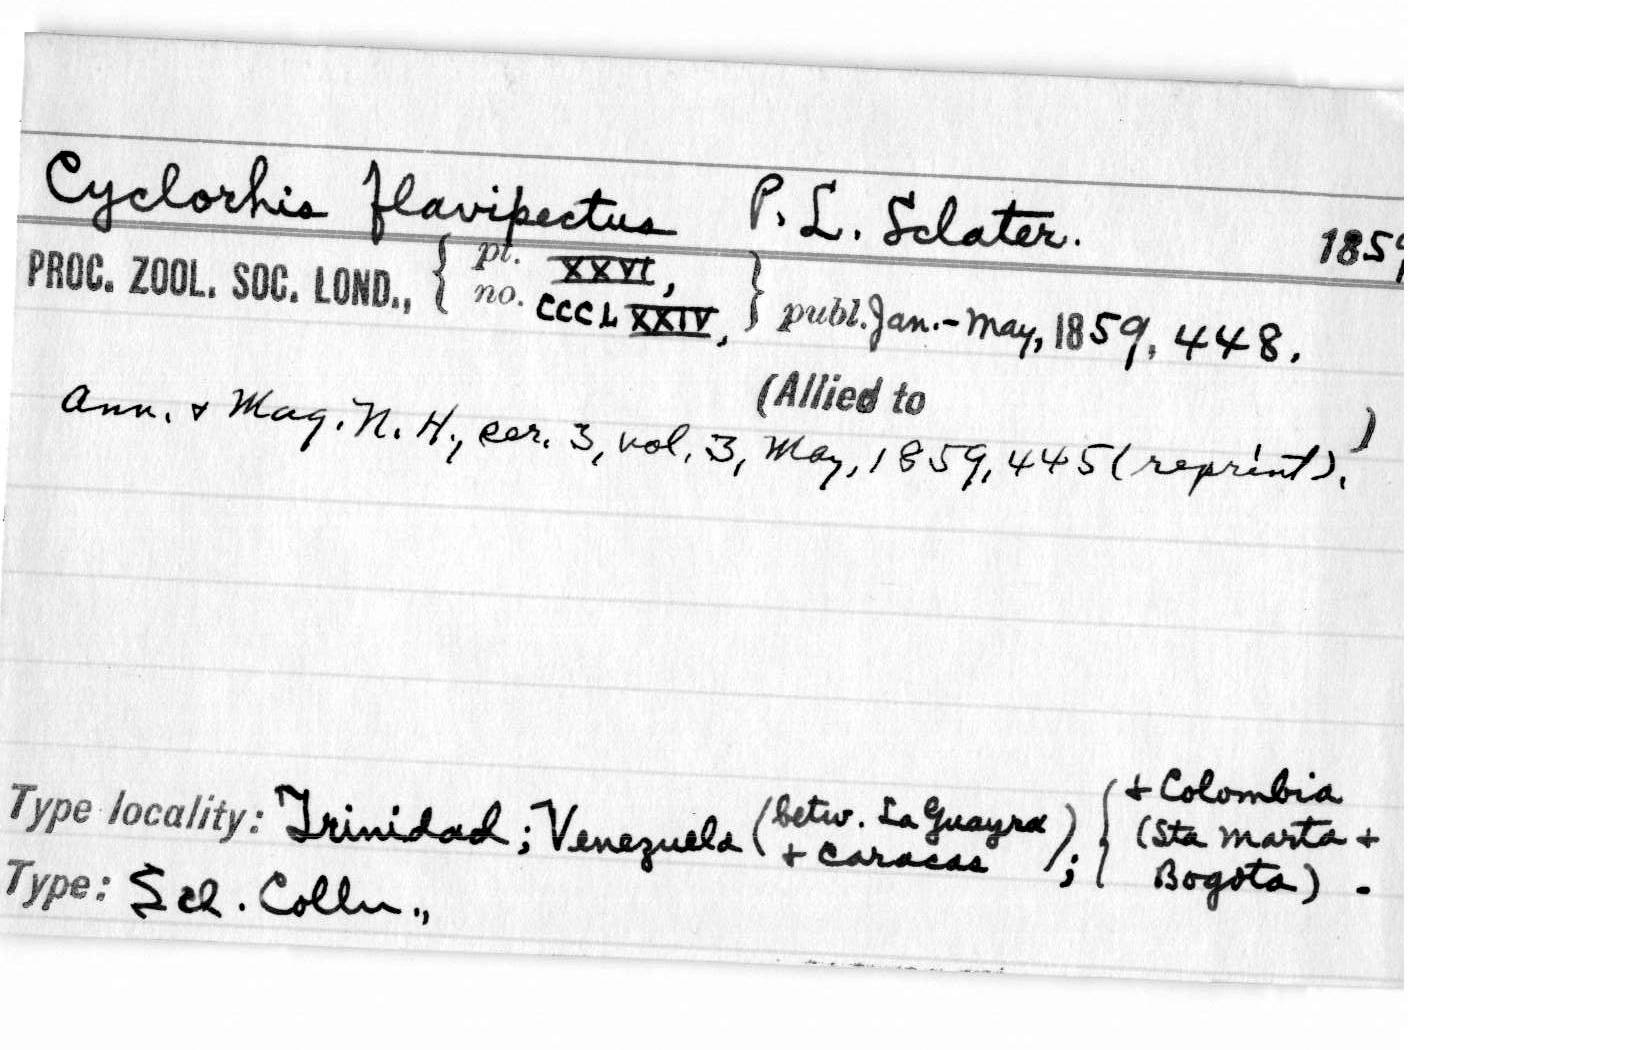 Cyclorhis flavipectus P. L. Sclater. 1859
PROC. ZOOL. SOC. LOND., { pt. XXVI, no. CCCLXXIV, } publ. Jan.-May, 1859, 448.
(Allied to )
Ann. & Mag. N. H., ser. 3, vol. 3, May, 1859, 445 (reprint).
Type locality: Trinidad; Venezuela (betw. La Guayra + Caracas); { + Colombia (Sta Marta + Bogota).
Type: Scl. Colln.,